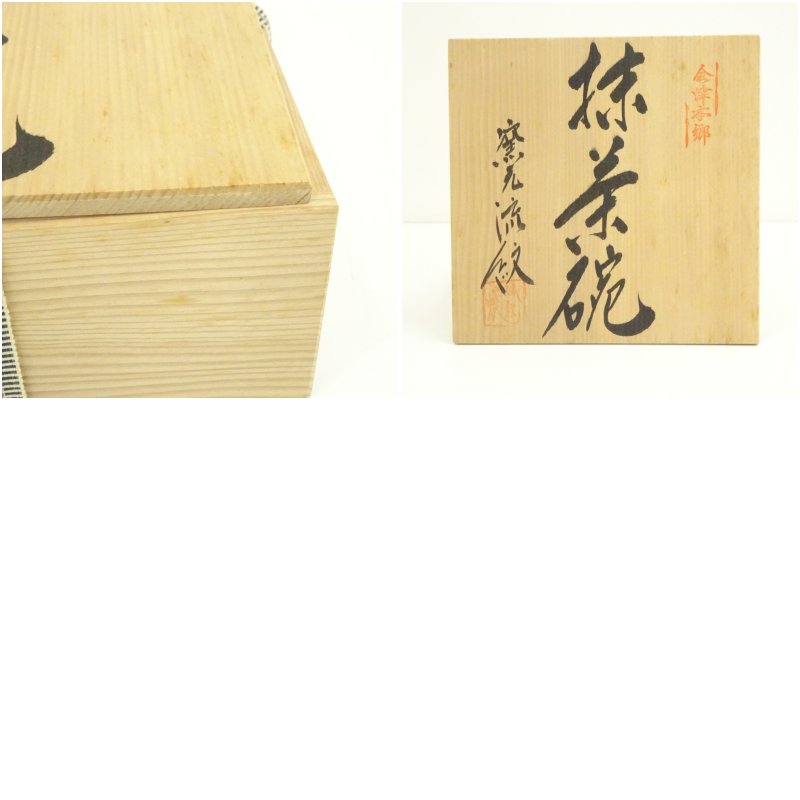 会津本郷
抹茶碗
窯元流紋